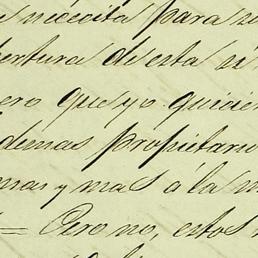 necesita para su
pertura de esta si
ero que yo quicie
demas propietario
mas y mas á la m
= Pero no, estos